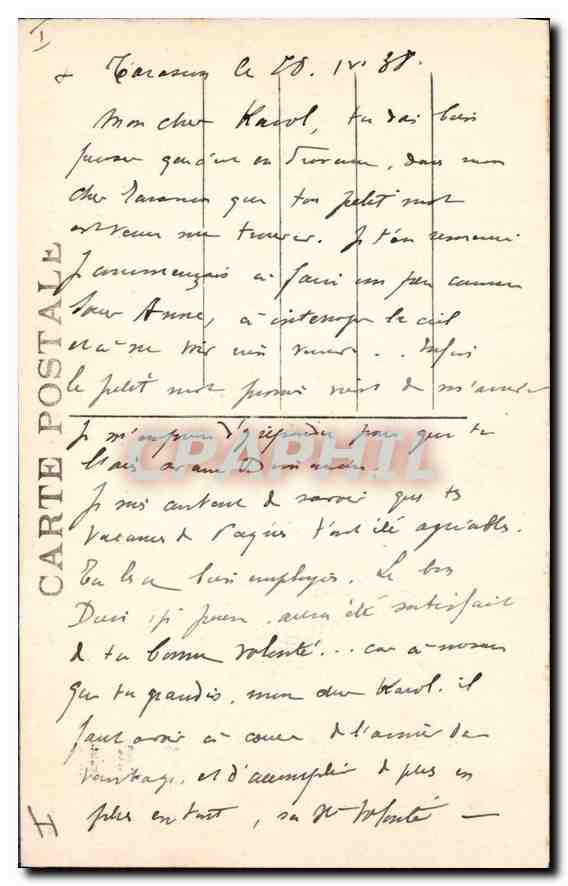 I
+ Tarascon le 28. IV. 38.
Mon cher Karol, tu dois bien
penser que c'est en Provence, dans mon
cher Tarascon que ton petit mot
est venu me trouver. Je t'en remercie
Je commençais à faire un peu comme
Sœur Anne, à interroger le ciel
et à ne voir rien venir... Enfin
le petit mot promis vient de m'arriver
Je m'empresse d'y répondre pour que tu
l'aies avant
Je suis content de savoir que tes
vacances de Pâques t'ont été agréables.
Tu les a bien employées. Le bon
Dieu, je pense, aura été satisfait
de ta bonne volonté... car à mesure
que tu grandis, mon cher Karol, il
faut avoir à cœur de l'aimer da
vantage, et d'accomplir de plus en
plus en tout, sa Ste Volonté —
CARTE POSTALE
CPAPHIL
I